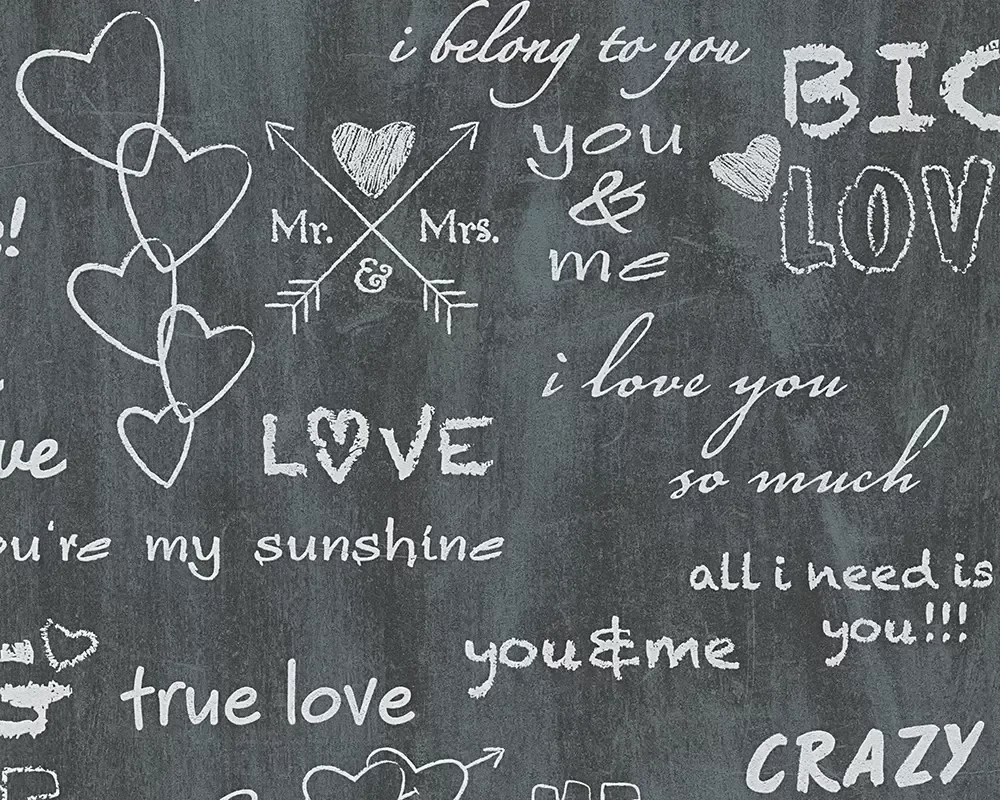 i belong to you
BIG
LOV
you
&
me
Mr. & Mrs.
i love you
so much
LOVE
ou're my sunshine
all i need is
you!!!
you&me
true love
CRAZY